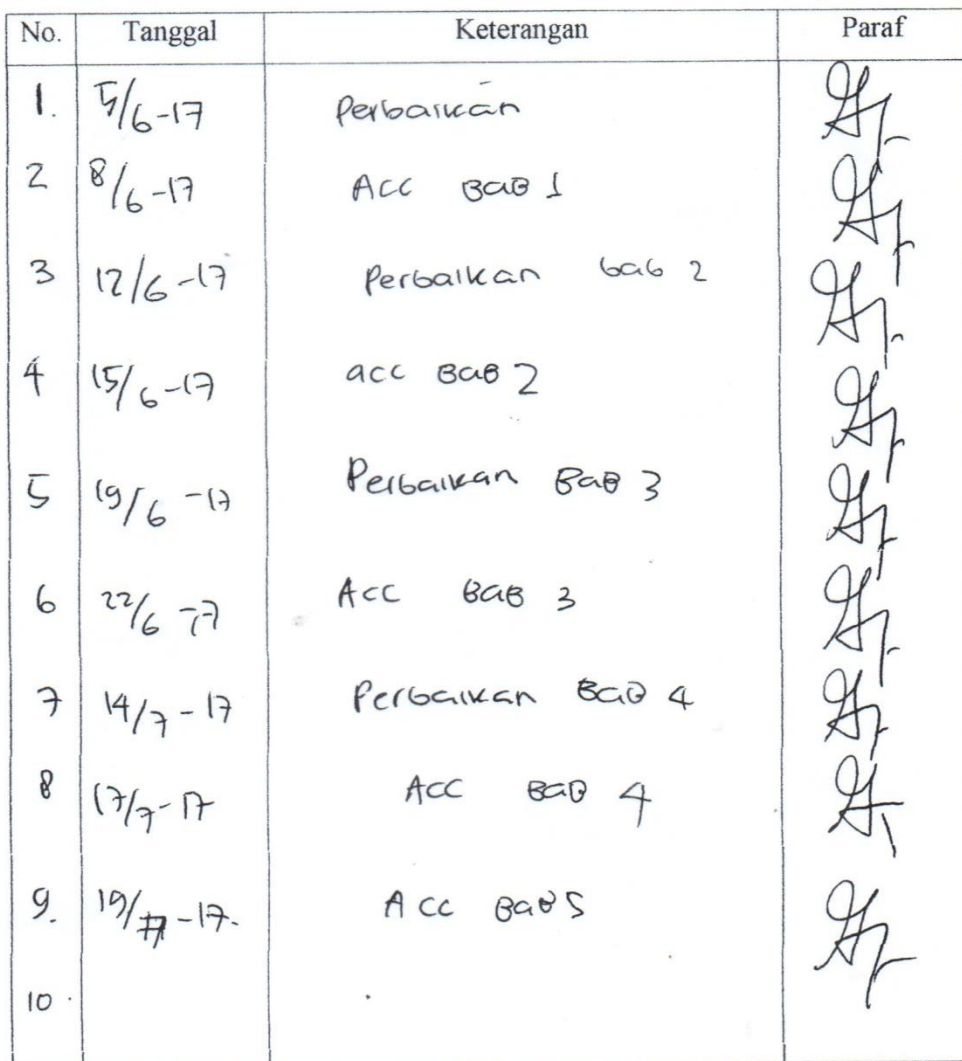 No. Tanggal Keterangan Paraf
1. 5/6-17 Perbaikan
2 8/6-17 Acc BaB 1
3 12/6-17 Perbaikan bab 2
4 15/6-17 acc BaB 2
5 19/6-17 Perbaikan BaB 3
6 22/6-17 Acc BaB 3
7 14/7-17 Perbaikan BaB 4
8 17/7-17 Acc BaB 4
9. 19/7-17. Acc BaB 5
10